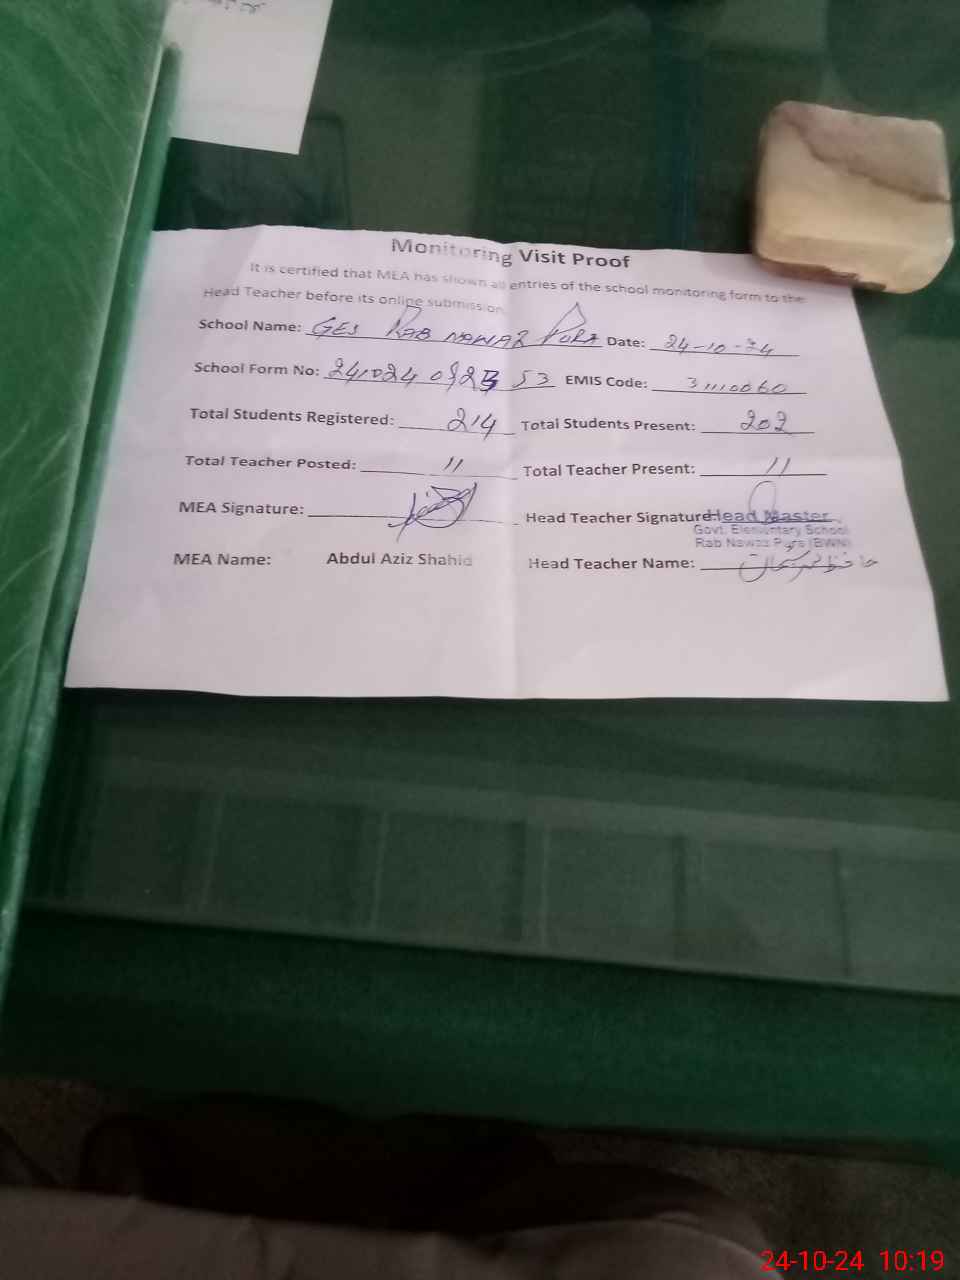 Monitoring Visit Proof
It is certified that MEA has shown all entries of the school monitoring form to the
Head Teacher before its online submission
School Name: GES RAB NAWAZ PURA Date: 24-10-24
School Form No: 53 EMIS Code: 31110060
Total Students Registered: 214 Total Students Present: 202
Total Teacher Posted: 11 Total Teacher Present: 11
MEA Signature: Head Teacher Signature: Head Master
Govt. Elementary School
Rab Nawaz Pura (BWN)
MEA Name: Abdul Aziz Shahid Head Teacher Name: حافظ
24-10-24 10:19